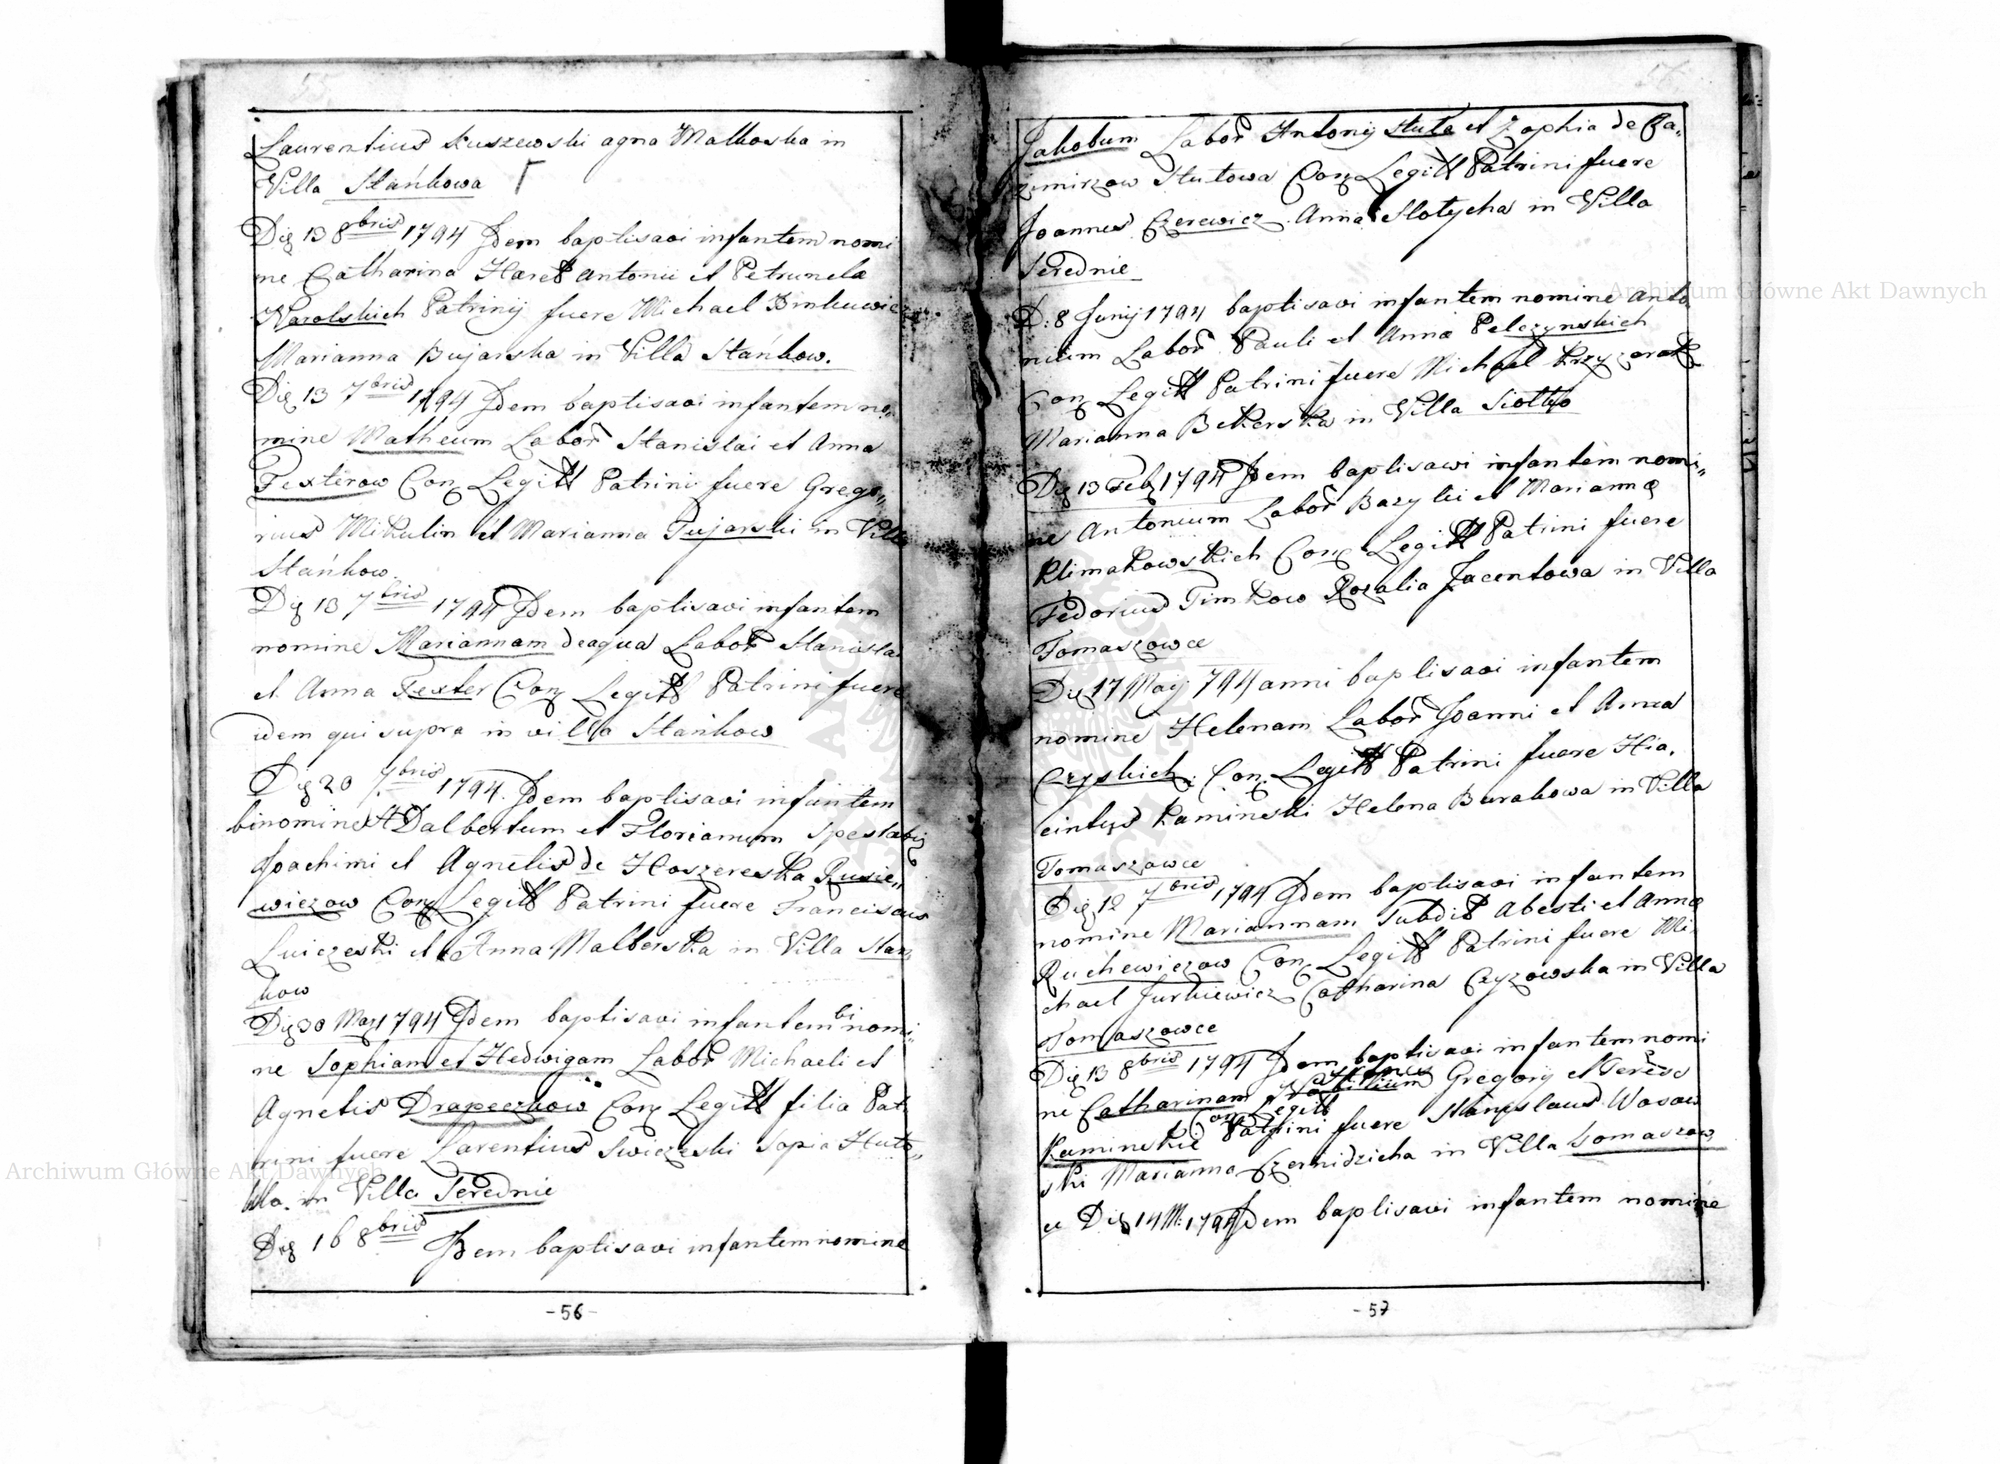 Laurentius Kuszewski agna Malkoska in
Villa Stańkowa
Die 13 8bris 1794 Idem baptisavi infantem nomi
ne Catharina Haret Antonii et Petrunela
Karolskich Patrinij fuere Michael
Marianna Bujarska in Villa Stańkow.
Die 13 7bris 1794 Idem baptisavi infantem no,
mine Matheum Labor Stanislai et Anna
Fexterow Conj Legitt Patrini fuere Grego,,
rius Mikulin et Marianna Tujarski in Villa
Stańkow.
Die 13 7bris 1794 Idem baptisavi infantem
nomine Mariannam deaqua Labor Stanisla
et Anna Fexter Conj Legitt Patrini fuere
idem qui supra in villa Stańkow
Die 20 7bris 1794. Idem baptisavi infantem
binomine Adalbertum et Florianum
Joachimi et Agnetis de Hoszereska Rusie,,
wiczow Conj Legitt Patrini fuere Franciscus
Luiczeski et Anna Malberska in Villa Stan,
kow
Die 30 Maj 1794 Idem baptisavi infantem bi nomi,
ne Sophiam et Hedwigam Labor Michaeli et
Agnetis Drapeczkow Conj Legitt filia Pat
rini fuere Larentius Swiczeski Sopia Huto,,
in Villa Serednie
Die 16 8bris Idem baptisavi infantem nomine
-56-
Jakobum Labor Antonij Huta et Zophia de Ca,,
zimirzow Hutowa Conj Legitt Patrini fuere
Joannes Czerewicz Anna Slotycha in Villa
Serednie
D: 8 Junij 1794 baptisavi infantem nomine Anto
nium Labor Pauli et Anna Pelczynskich
Conj Legitt Patrini fuere Michael
Marianna Bekerska in Villa Siolko
Die 13 Feb 1794 Idem baptisavi infantem nomi,,
ne Antonium Labor Bazyli et Marianna
Klimakowskich Conj Legitt Patrini fuere
Fedorius Timkow Rozalia Jacentowa in Villa
Tomaszowce
Die 17 Maij 794 anni baptisavi infantem
nomine Helenam Labor Joanni et Anna
Czyskich Conj Legitt Patrini fuere Hia,
cintus Kaminski Helena Burakowa in Villa
Tomaszowce
Die 12 7bris 1794 Idem baptisavi infantem
nomine Mariannam Subdit Abesti et Anna
Ruchewiczow Conj Legitt Patrini fuere Mi,
chael Jurkiewicz Catharina Czyzowska in Villa
Tomaszowce
Die 13 8bris 1794 Idem baptisavi infantem nomi
ne Catharinam Nobilium Gregorij et Teresa
Kaminskie Conj Legitt Patrini fuere Stanislaus Wasow
ski Marianna Czernidzicha in Villa Tomaszow,
ce Die 14 M: 1794 Idem baptisavi infantem nomine
-57-
Archiwum Główne Akt Dawnych
Archiwum Główne Akt Dawnych